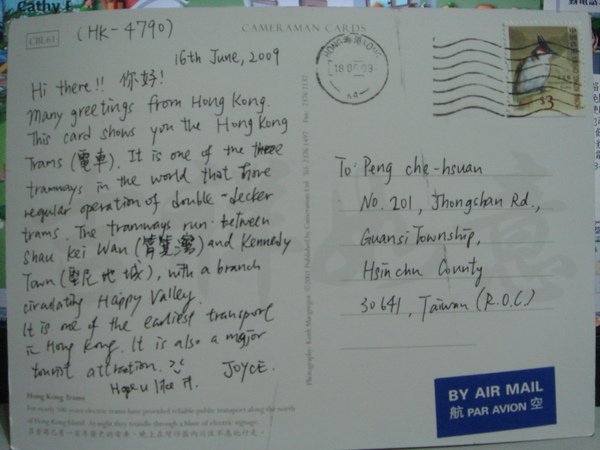 Cathy F
CBL61
CAMERAMAN CARDS
(HK-4790)
16th June, 2009
Hi there!! 你好!
Many greetings from Hong Kong.
This card shows you the Hong Kong
Trams (電車). It is one of the three
tramways in the world that have
regular operation of double-decker
trams. The tramways run between
Shau Kei Wan (筲箕灣) and Kennedy
Town (堅尼地城), with a branch
circulating Happy Valley.
It is one of the earliest transport
in Hong Kong. It is also a major
tourist attraction.
Hope u like it.
JOYCE.
Hong Kong Trams
For nearly 100 years electric trams have provided reliable public transport along the north
of Hong Kong Island. At night they trundle through a blaze of electric signage.
Photography: Keith Macgregor ©2001 Published by Cameraman Ltd. Tel: 2336 1497 Fax: 2336 2132
HONG KONG
$3
To: Peng che-hsuan
No. 201, Jhongshan Rd.,
Guansi Township,
Hsinchu County
30641, Taiwan (R.O.C.)
BY AIR MAIL
航 PAR AVION 空